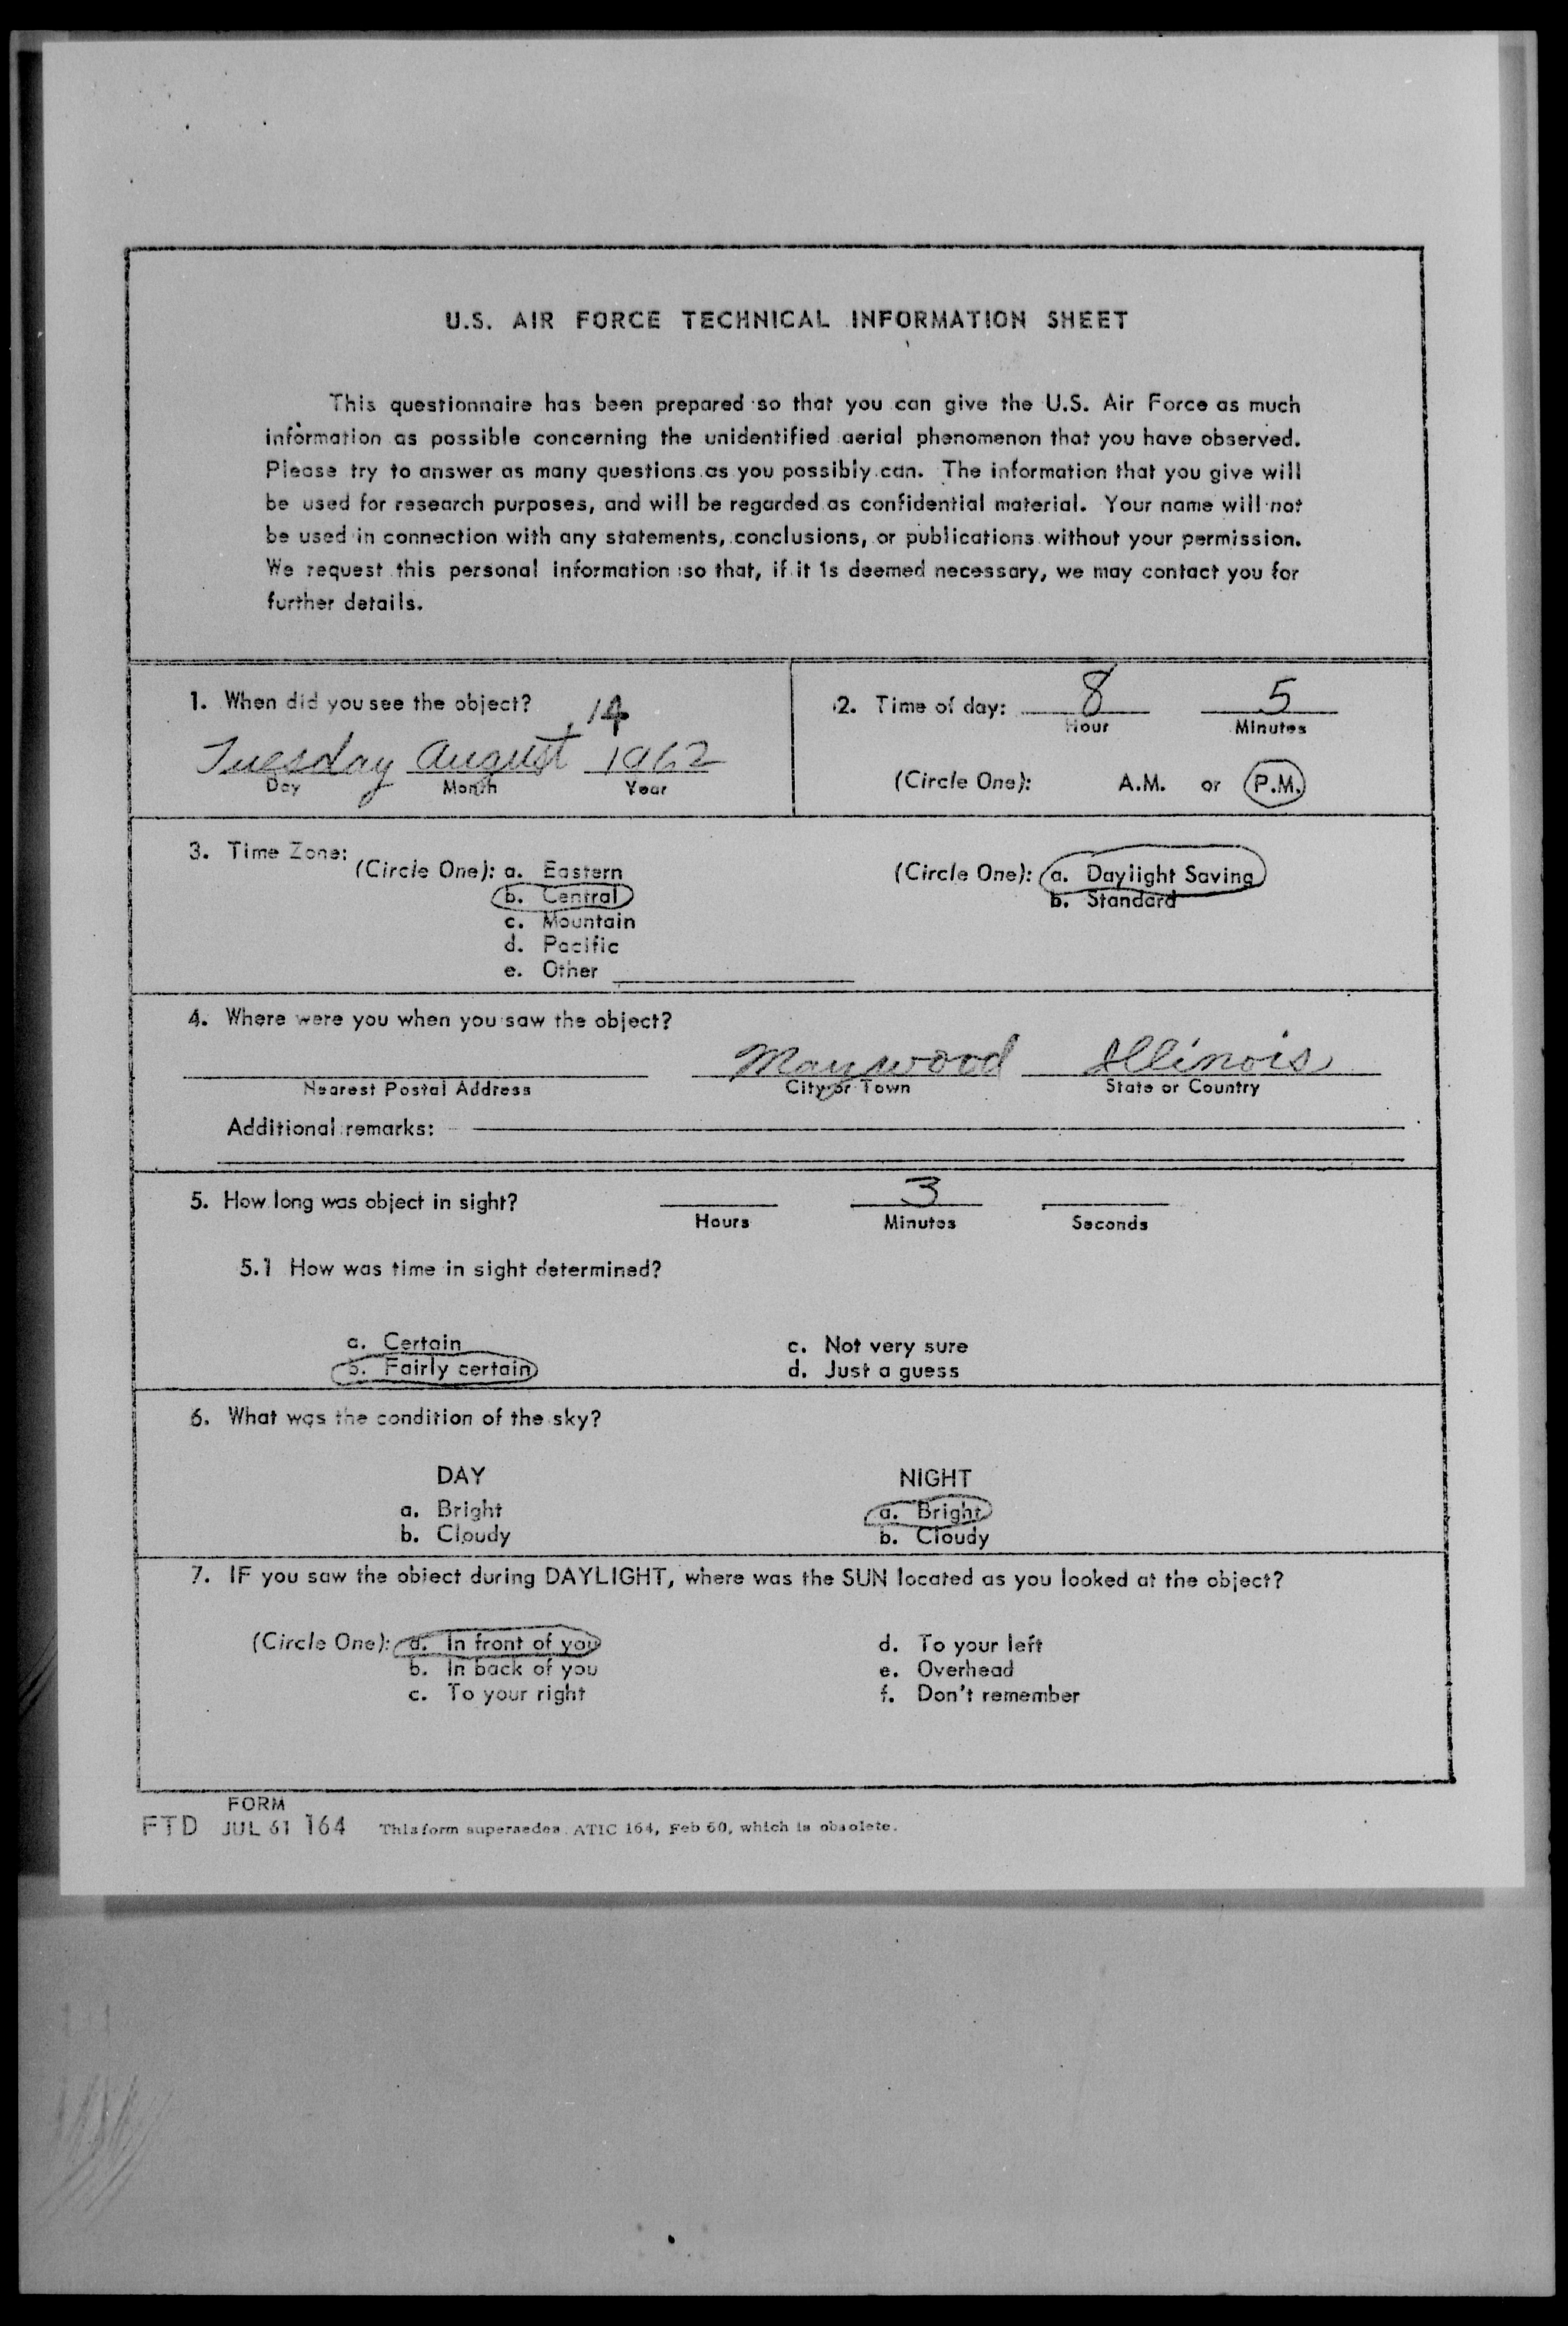 U.S. AIR FORCE TECHNICAL INFORMATION SHEET
This questionnaire has been prepared so that you can give the U.S. Air Force as much
information as possible concerning the unidentified aerial phenomenon that you have observed.
Please try to answer as many questions as you possibly can. The information that you give will
be used for research purposes, and will be regarded as confidential material. Your name will not
be used in connection with any statements, conclusions, or publications without your permission.
We request this personal information so that, if it is deemed necessary, we may contact you for
further details.
1. When did you see the object?
, 14
Tuesday August 1962
Day Month Year
2. Time of day: 8 5
Hour Minutes
(Circle One): A.M. or P.M.
3. Time Zone:
(Circle One): a. Eastern
b. Central
c. Mountain
d. Pacific
e. Other
(Circle One): a. Daylight Saving
b. Standard
4. Where were you when you saw the object?
Maywood Illinois
Nearest Postal Address City or Town State or Country
Additional remarks:
5. How long was object in sight? 3
Hours Minutes Seconds
5.1 How was time in sight determined?
a. Certain
b. Fairly certain
c. Not very sure
d. Just a guess
6. What was the condition of the sky?
DAY
a. Bright
b. Cloudy
NIGHT
a. Bright
b. Cloudy
7. IF you saw the object during DAYLIGHT, where was the SUN located as you looked at the object?
(Circle One): a. In front of you
b. In back of you
c. To your right
d. To your left
e. Overhead
f. Don't remember
FORM
FTD JUL 61 164 This form supersedes ATIC 164, Feb 60, which is obsolete.